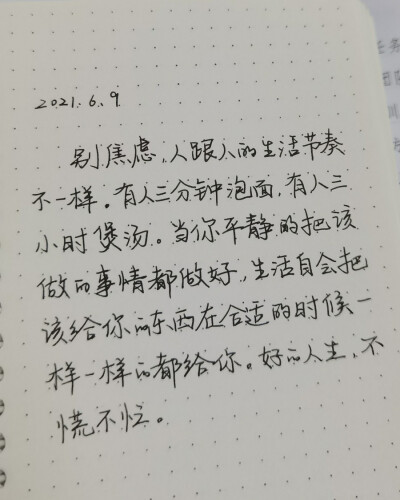 2021.6.9
别焦虑，人跟人的生活节奏
不一样。有人三分钟泡面，有人三
小时煲汤。当你平静的把该
做的事情都做好，生活自会把
该给你的东西在合适的时候一
样一样的都给你。好的人生，不
慌不忙。